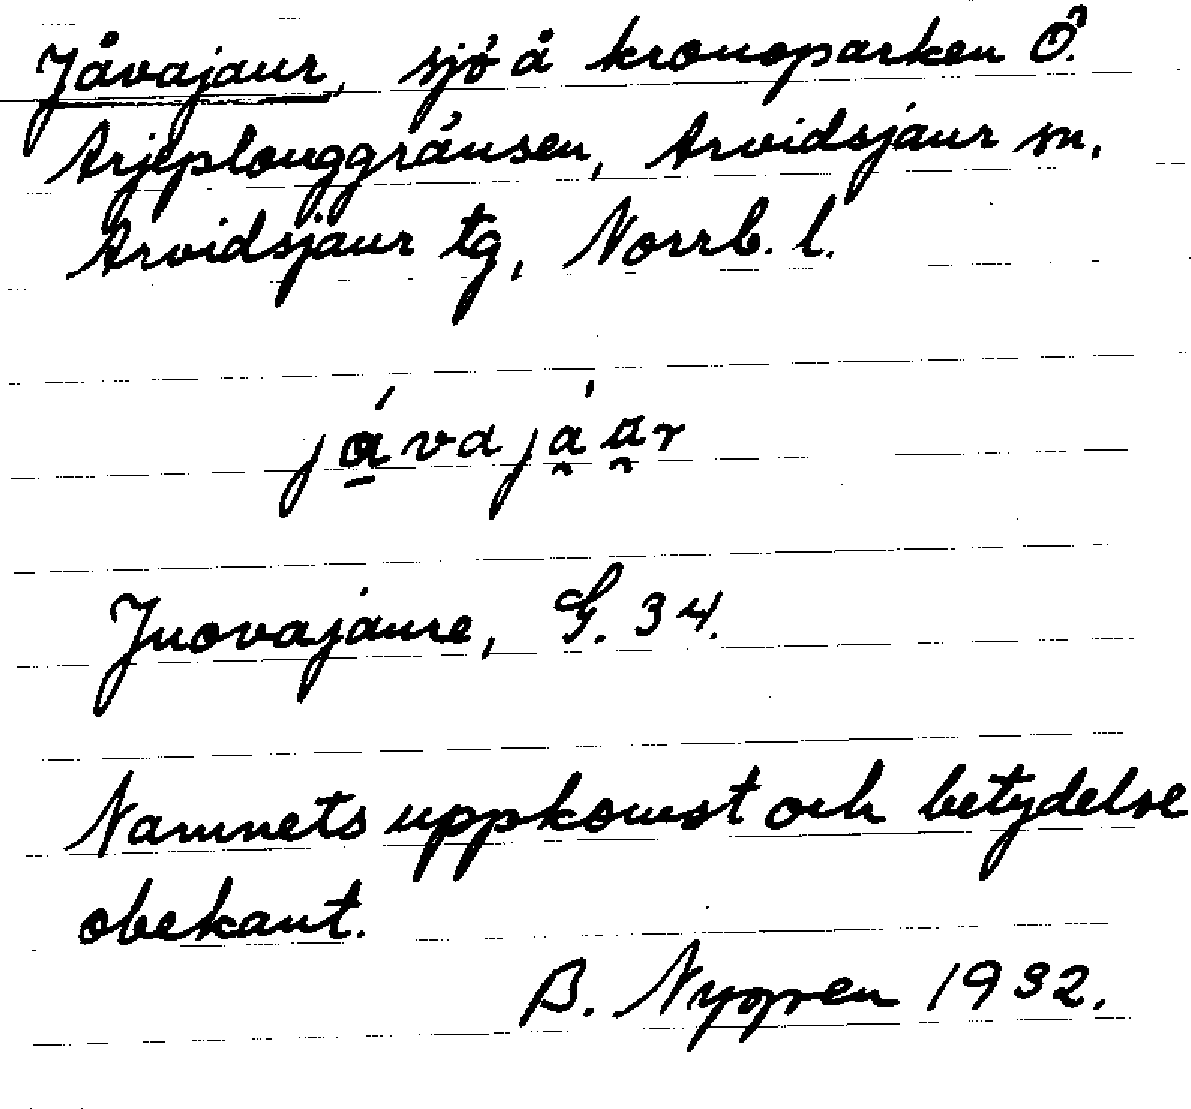 Jåvajaur, sjö å kronoparken Ö.
Arjeplouggränsen, Arvidsjaur sn.
Arvidsjaur tg, Norrb. l.
já̱vajá̯a̯r
Juovajaure, G. 34.
Namnets uppkomst och betydelse
obekant.
B. Nygren 1932.